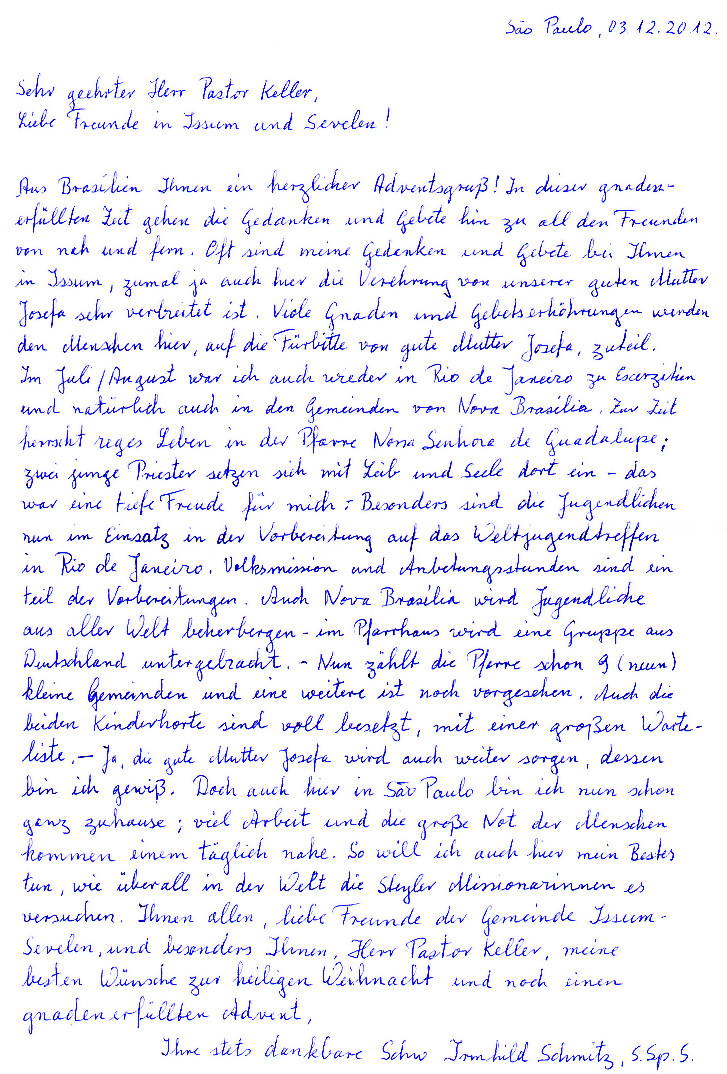 São Paulo, 03.12.2012.
Sehr geehrter Herr Pastor Keller,
Liebe Freunde in Issum und Sevelen!
Aus Brasilien Ihnen ein herzlicher Adventsgruß! In dieser gnaden-
erfüllten Zeit gehen die Gedanken und Gebete hin zu all den Freunden
von nah und fern. Oft sind meine Gedenken und Gebete bei Ihnen
in Issum, zumal ja auch hier die Verehrung von unserer guten Mutter
Josefa sehr verbreitet ist. Viele Gnaden und Gebetserhöhrungen werden
den Menschen hier, auf die Fürbitte von gute Mutter Josefa, zuteil.
Im Juli/August war ich auch wieder in Rio de Janeiro zu Exerzitien
und natürlich auch in den Gemeinden von Nova Brasília. Zur Zeit
herrscht reges Leben in der Pfarre Nossa Senhora de Guadalupe;
zwei junge Priester setzen sich mit Leib und Seele dort ein - das
war eine tiefe Freude für mich. Besonders sind die Jugendlichen
nun im Einsatz in der Vorbereitung auf das Weltjugendtreffen
in Rio de Janeiro. Volksmission und Anbetungsstunden sind ein
teil der Vorbereitungen. Auch Nova Brasília wird Jugendliche
aus aller Welt beherbergen - im Pfarrhaus wird eine Gruppe aus
Deutschland untergebracht. - Nun zählt die Pfarre schon 9 (neun)
kleine Gemeinden und eine weitere ist noch vorgesehen. Auch die
beiden Kinderhorte sind voll besetzt, mit einer großen Warte-
liste. - Ja, die gute Mutter Josefa wird auch weiter sorgen, dessen
bin ich gewiß. Doch auch hier in São Paulo bin ich nun schon
ganz zuhause; viel Arbeit und die große Not der Menschen
kommen einem täglich nahe. So will ich auch hier mein Bestes
tun, wie überall in der Welt die Steyler Missionarinnen es
versuchen. Ihnen allen, liebe Freunde der Gemeinde Issum-
Sevelen, und besonders Ihnen, Herr Pastor Keller, meine
besten Wünsche zur heiligen Weihnacht und noch einen
gnadenerfüllten Advent,
Ihre stets dankbare Schw Irmhild Schmitz, S.Sp.S.